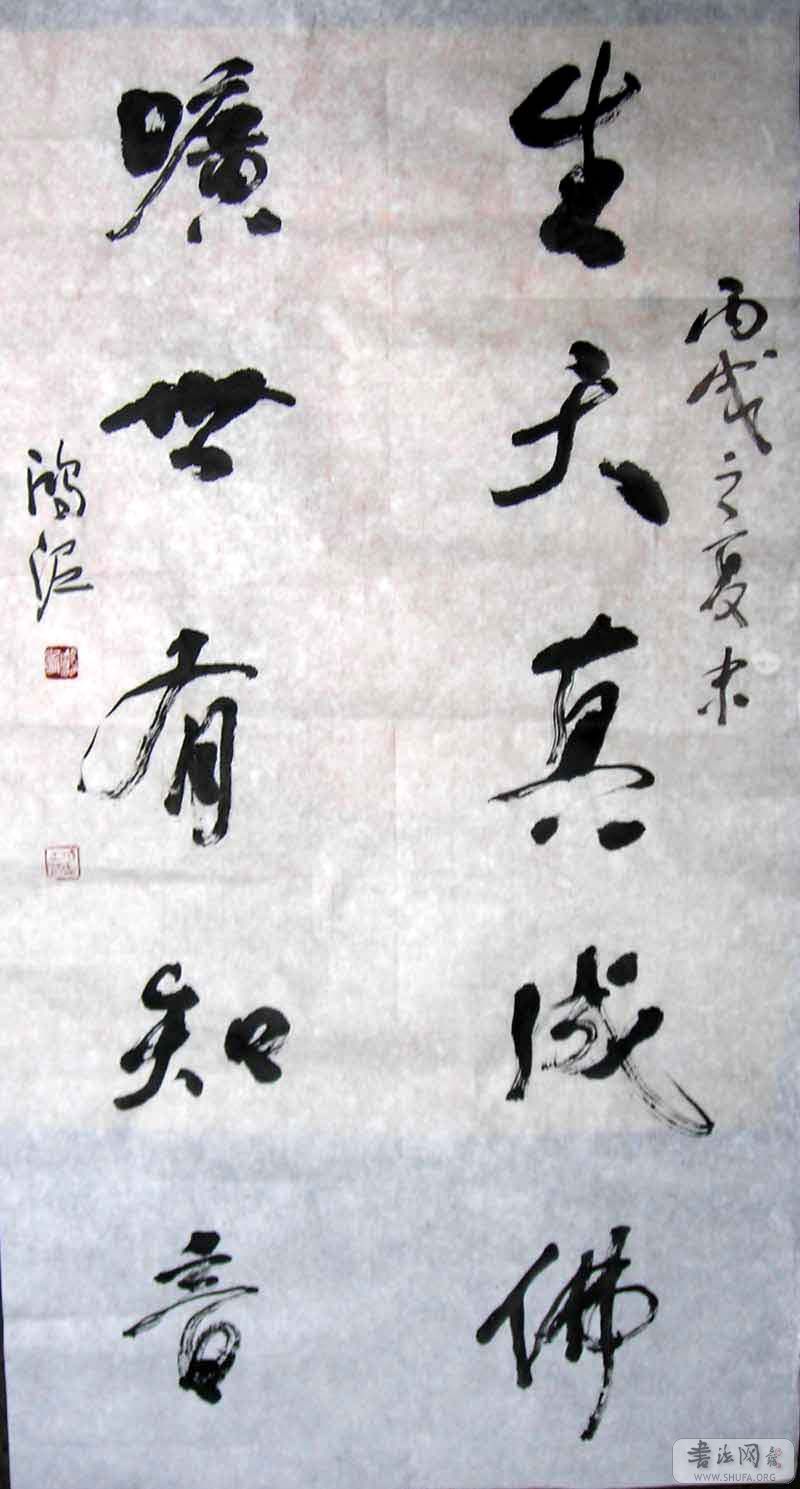 丙戌之夏末
生天真成佛
曠世有知音
書法网
WWW.SHUFA.ORG